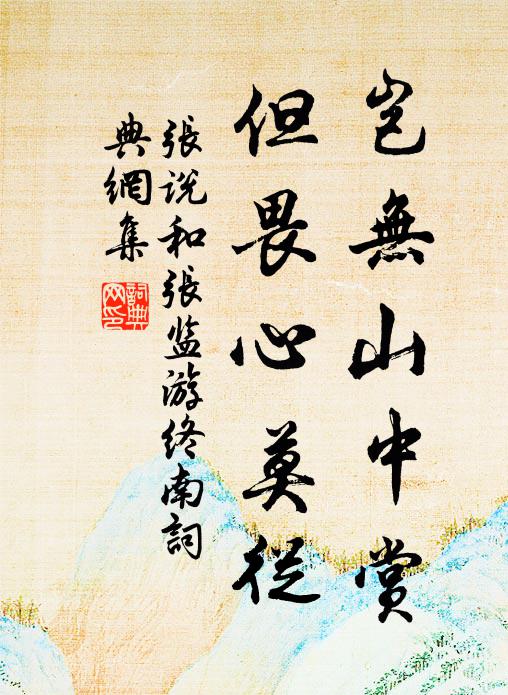 豈無山中賞
但畏心莫從
張说和張监游终南詞
典網集
詞典
网印